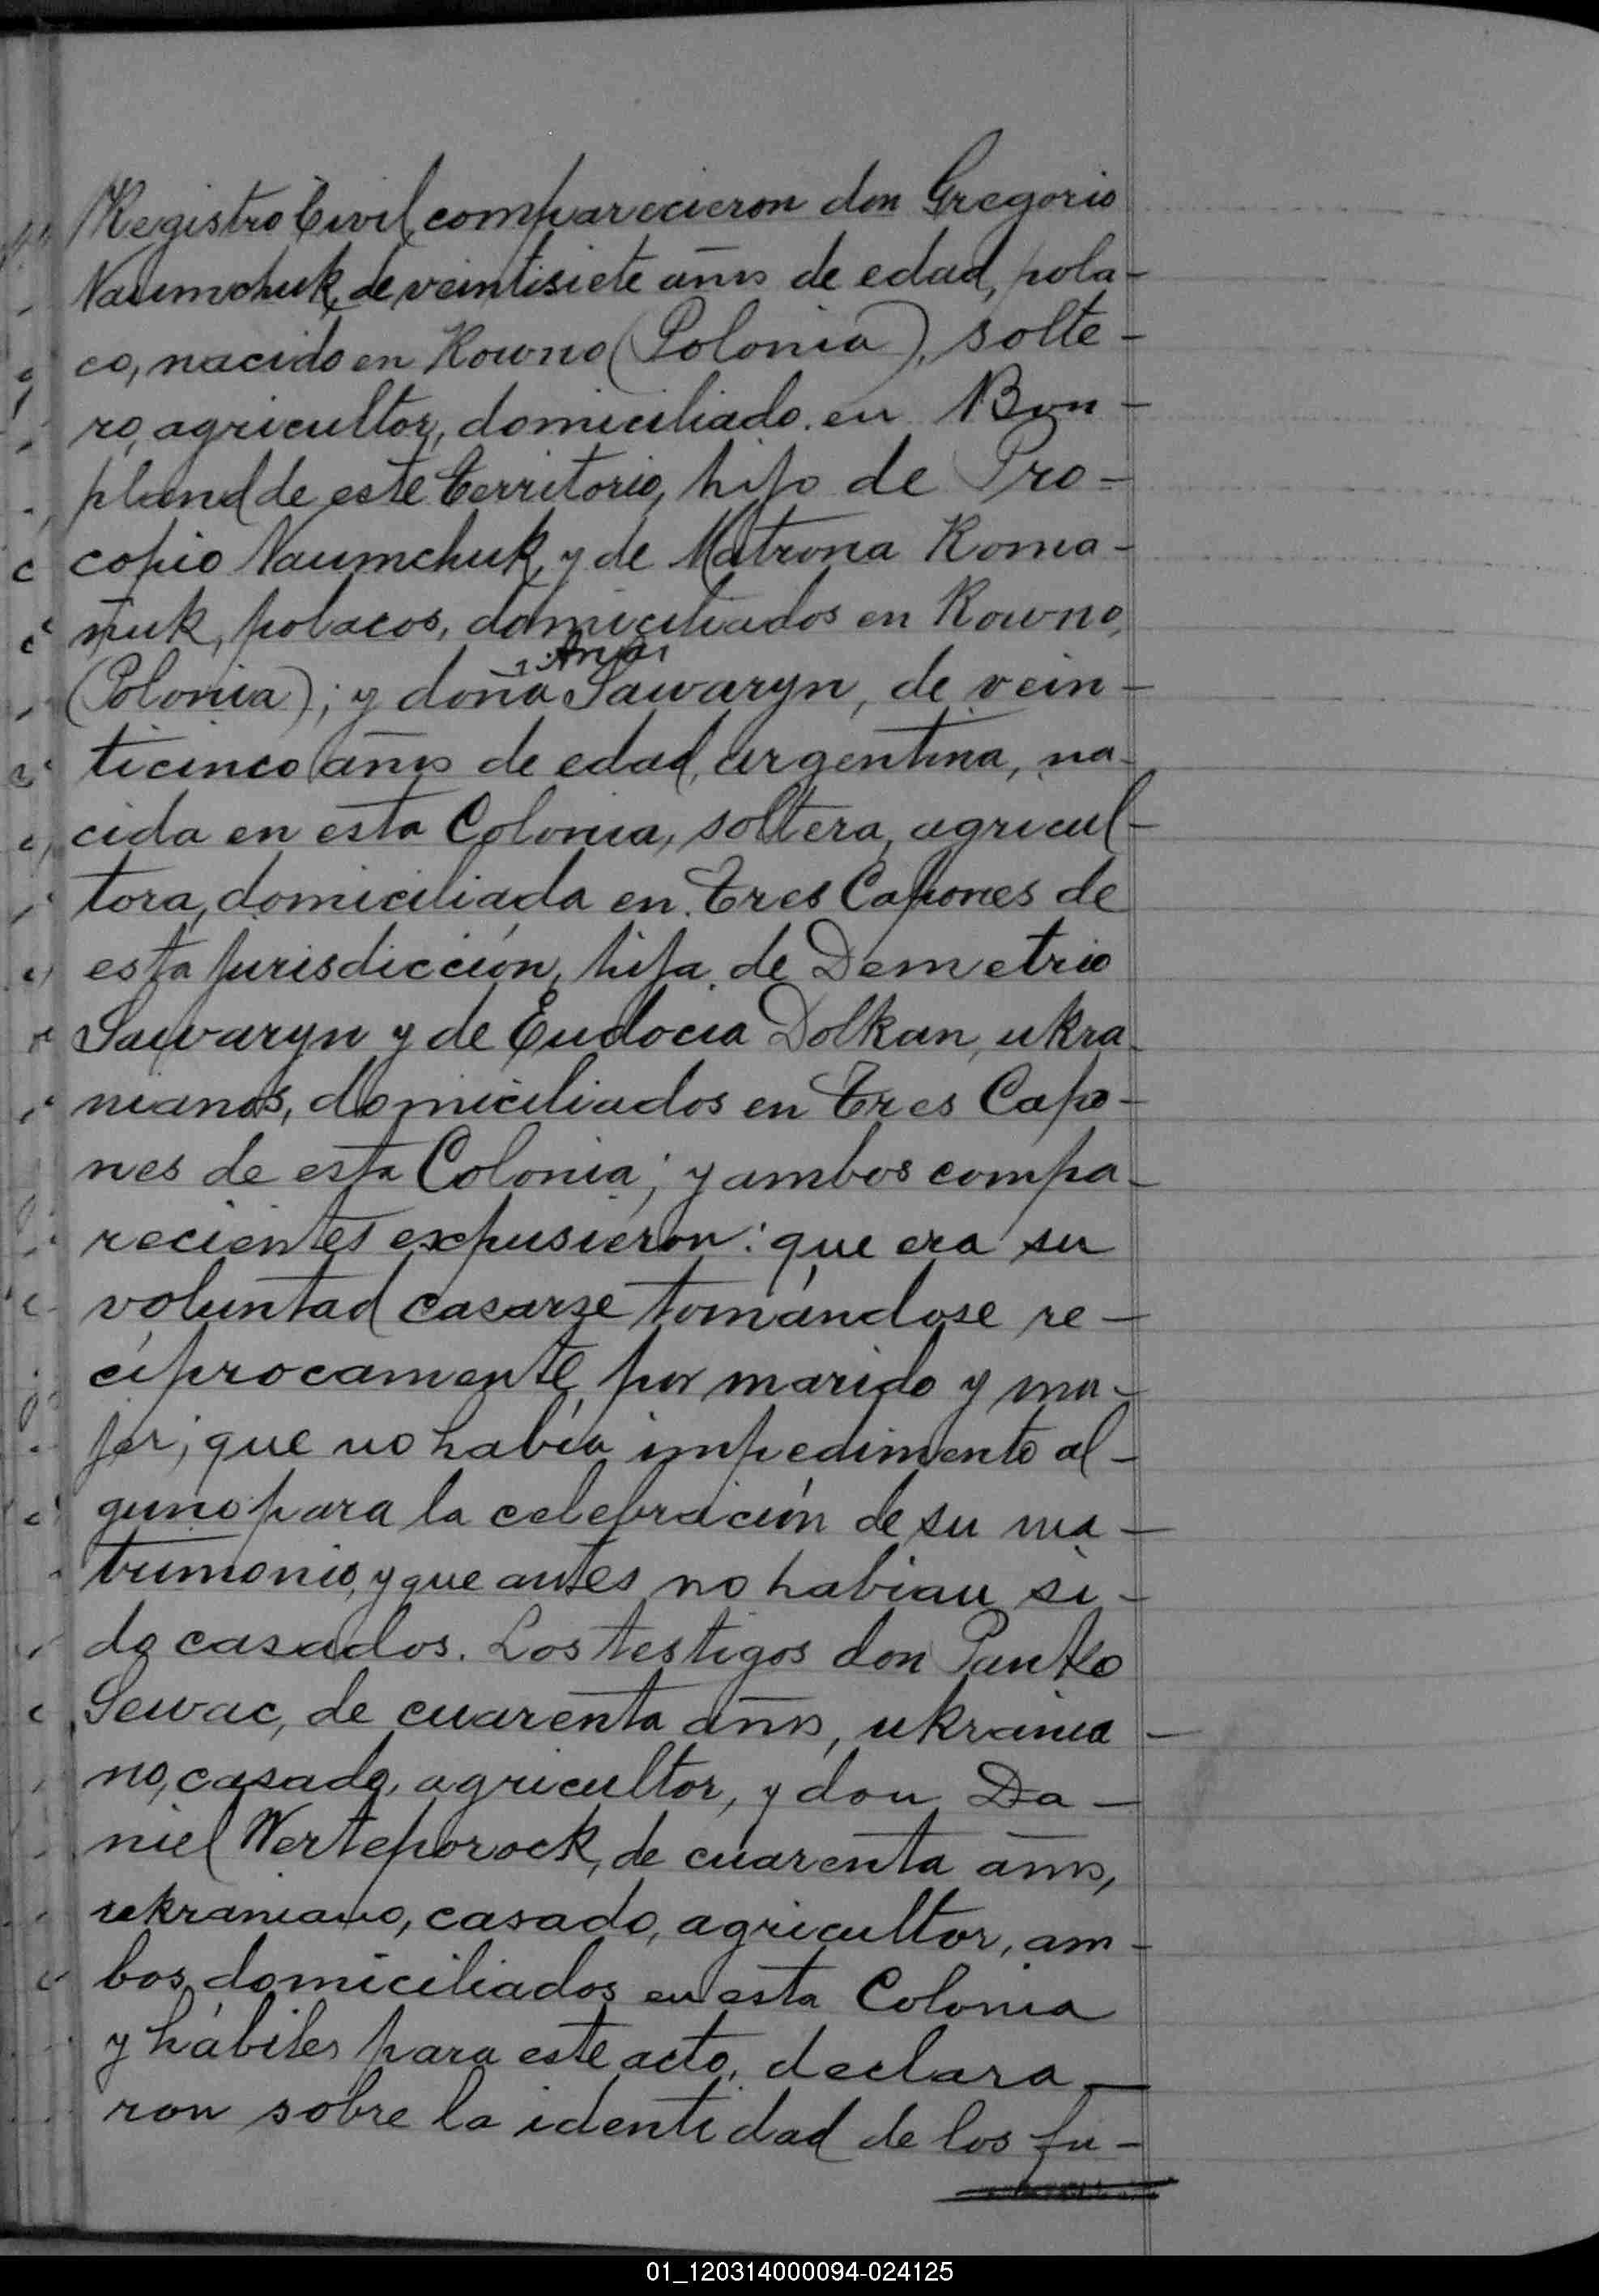 Registro Civil, comparecieron don Gregorio
Naumchuk, de veintisiete años de edad, pola-
co, nacido en Rowno (Polonia), solte-
ro, agricultor, domiciliado en Bon-
pland de este Territorio, hijo de Pro-
copio Naumchuk, y de Matrona Roma-
ñuk, polacos, domiciliados en Rowno,
(Polonia); y doña Ana Sawaryn, de vein-
ticinco años de edad, argentina, na-
cida en esta Colonia, soltera, agricul-
tora, domiciliada en Tres Capones de
esta jurisdicción, hija de Demetrio
Sawaryn y de Eudocia Dolkan, ukra-
nianos, domiciliados en Tres Capo-
nes de esta Colonia; y ambos compa-
recientes expusieron: que era su
voluntad casarse tomándose re-
cíprocamente por marido y mu-
jer; que no había impedimento al-
guno para la celebración de su ma-
trimonio, y que antes no habian si-
do casados. Los testigos don Panko
Sewac, de cuarenta años, ukrania-
no, casado, agricultor, y don Da-
niel Werteporock, de cuarenta años,
ukraniano, casado, agricultor, am-
bos domiciliados en esta Colonia
y hábiles para este acto, declara-
ron sobre la identidad de los fu-
01_120314000094-024125